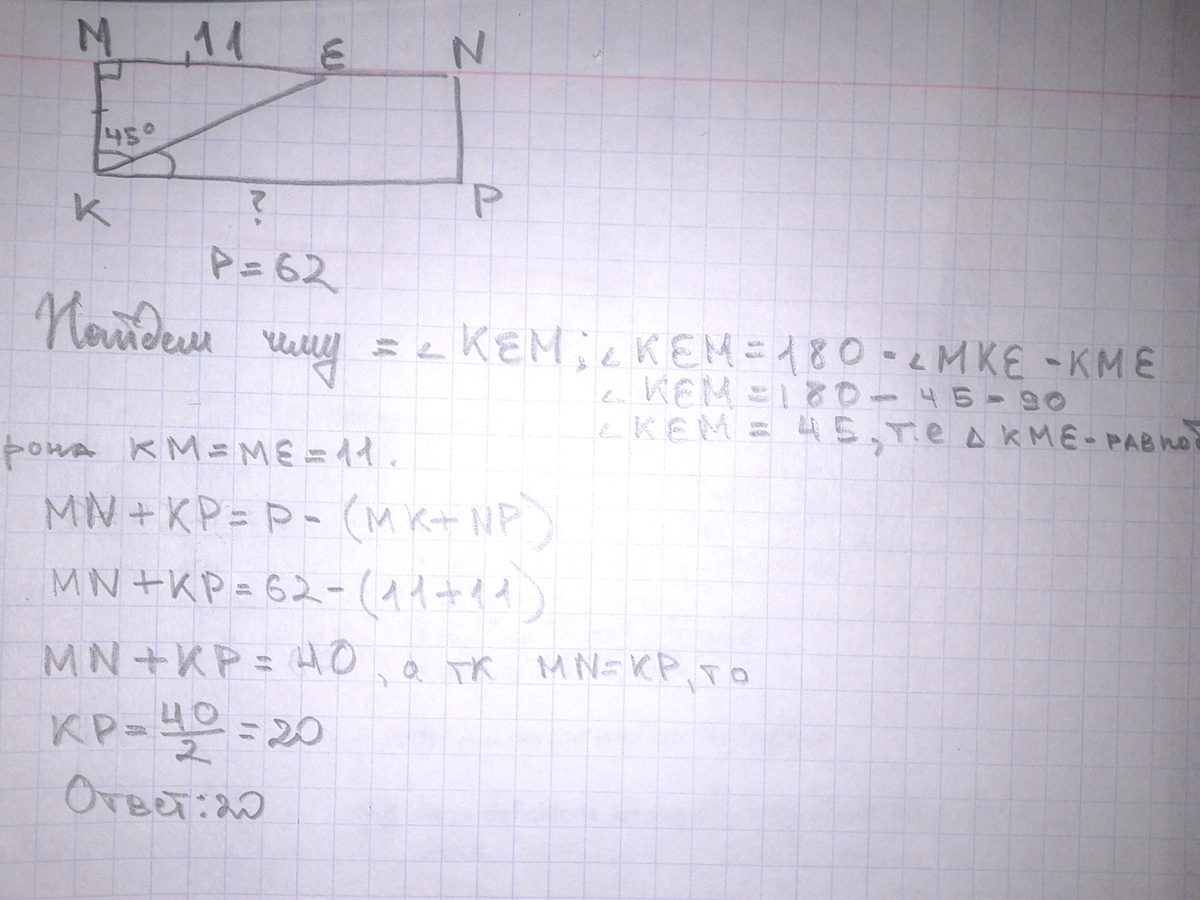 M 11 E N
45°
K ? P
P = 62
Найдем чему = ∠KEM; ∠KEM = 180 - ∠MKE - KME
∠KEM = 180 - 45 - 90
∠KEM = 45, т.е △ KME - равноб
рона KM = ME = 11.
MN + KP = P - (MK + NP)
MN + KP = 62 - (11 + 11)
MN + KP = 40, а тк MN = KP, то
KP = 40/2 = 20
Ответ: 20